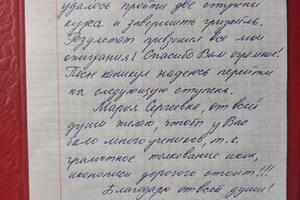 удалось пройти две ступени
курса и завершить грифель.
Результат превзошёл все мои
ожидания! Спасибо Вам огромное!
После каникул надеюсь перейти
на следующую ступень.
Мария Сергеевна, от всей
души желаю, чтобы у Вас
было много учеников, т.к.
грамотное толкование икон,
иконописи дорогого стоит!!!
Благодарю от всей души!